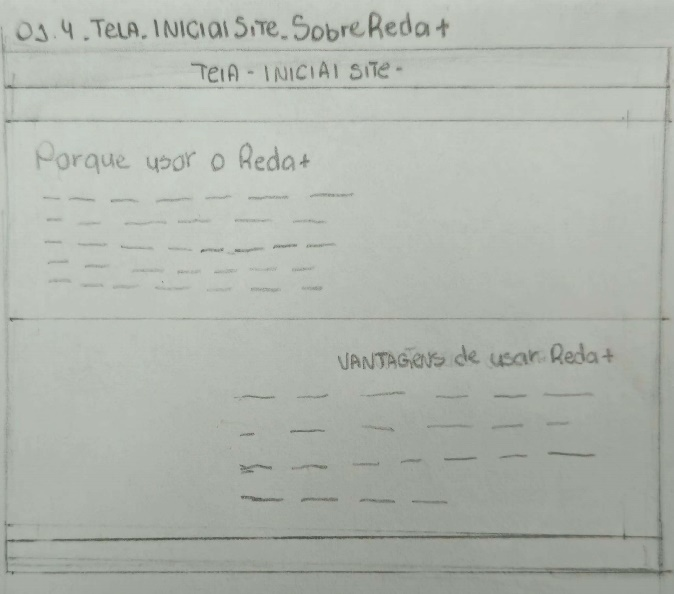 03.4.TELA.INICIAL SITE.Sobre Reda+
TELA - INICIAL SITE -
Porque usar o Reda+
VANTAGENS de usar Reda+